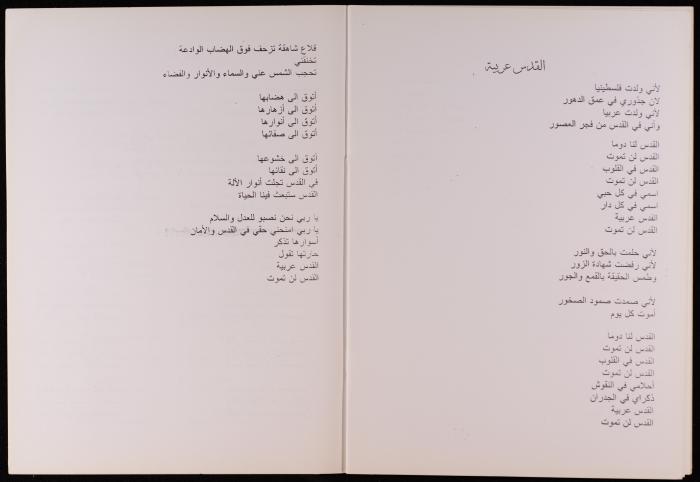 القدس عربية
لأني ولدت فلسطينيا
لان جذوري في عمق الدهور
لأني ولدت عربيا
وأني في القدس من فجر العصور
القدس لنا دوما
القدس لن تموت
القدس في القلوب
القدس لن تموت
اسمي في كل حبي
اسمي في كل دار
القدس عربية
القدس لن تموت
لأني حلمت بالحق والنور
لأني رفضت شهادة الزور
وطمس الحقيقة بالقمع والجور
لأني صمدت صمود الصخور
أموت كل يوم
القدس لنا دوما
القدس لن تموت
القدس في القلوب
القدس لن تموت
أحلامي في النقوش
ذكراي في الجدران
القدس عربية
القدس لن تموت
قلاع شاهقة تزحف فوق الهضاب الوادعة
تخنقني
تحجب الشمس عني والسماء والأنوار والفضاء
أتوق الى هضابها
أتوق الى أزهارها
أتوق الى أنوارها
أتوق الى صفائها
أتوق الى خشوعها
أتوق الى نقائها
في القدس تجلت أنوار الألة
القدس ستبعث فينا الحياة
يا ربي نحن نصبو للعدل والسلام
يا ربي امنحني حقي في القدس والأمان
أسوارها تذكر
حارتها تقول
القدس عربية
القدس لن تموت